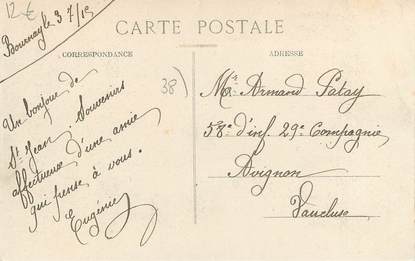 12 €
Bournay le 3/7/15
CARTE POSTALE
CORRESPONDANCE
ADRESSE
38)
Un bonjour de
St Jean, Souvenirs
affectueux d'une amie
qui pense à vous.
Eugénie
Mr Armand Patay
58e d'inf. 29e Compagnie
Avignon
Vaucluse